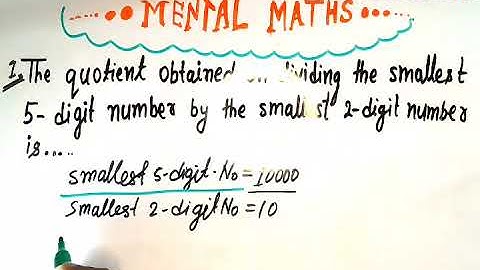 MENTAL MATHS
1. The quotient obtained on dividing the smallest
5-digit number by the smallest 2-digit number
is.....
smallest 5-digit.No = 10000
smallest 2-digit No = 10